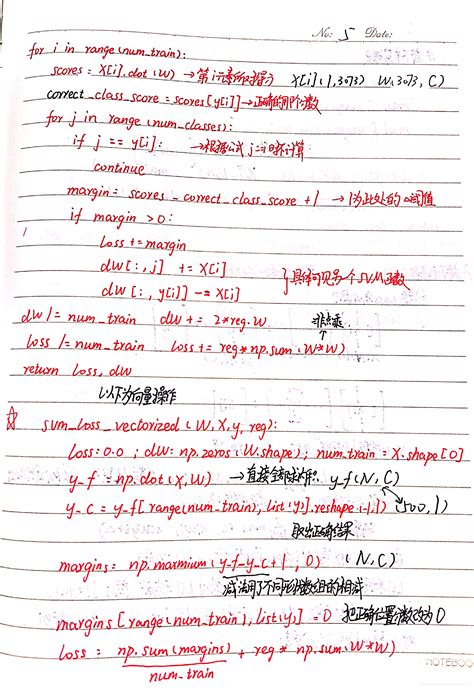 No: 5 Date:
for i in range(num_train):
scores = X[i].dot(W) → 第i元素所得得分 X[i](1,3073) W(3073, C)
correct_class_score = scores[y[i]] → 正确的那个分数
for j in range(num_classes):
if j == y[i]: → 根据公式 j=i时不计算
continue
margin = scores - correct_class_score + 1 → 1为此处的阈值
if margin > 0:
loss += margin
dW[:,j] += X[i]
dW[:, y[i]] -= X[i] 另个SVM函数
dW /= num_train dW += 2*reg.W 非点乘
loss /= num_train loss += reg*np.sum(W*W)
return loss, dW
以下为向量操作
☆ svm_loss_vectorized(W,X,y,reg):
loss=0.0 ; dW= np.zeros(W.shape); num_train = X.shape[0]
y_f = np.dot(X,W) → 直接全部求积 y_f(N,C)
y_c = y_f[range(num_train), list(y)].reshape(-1,1) (500,1)
取出正确结果
margins= np.maxmium(y_f-y_c+1,0) (N,C)
减法用了不同形状数组的相减
margins[range(num_train), list(y)] = 0 把正确位置分数改为0
loss = np.sum(margins) + reg * np.sum(W*W)
num_train
NOTEBOO